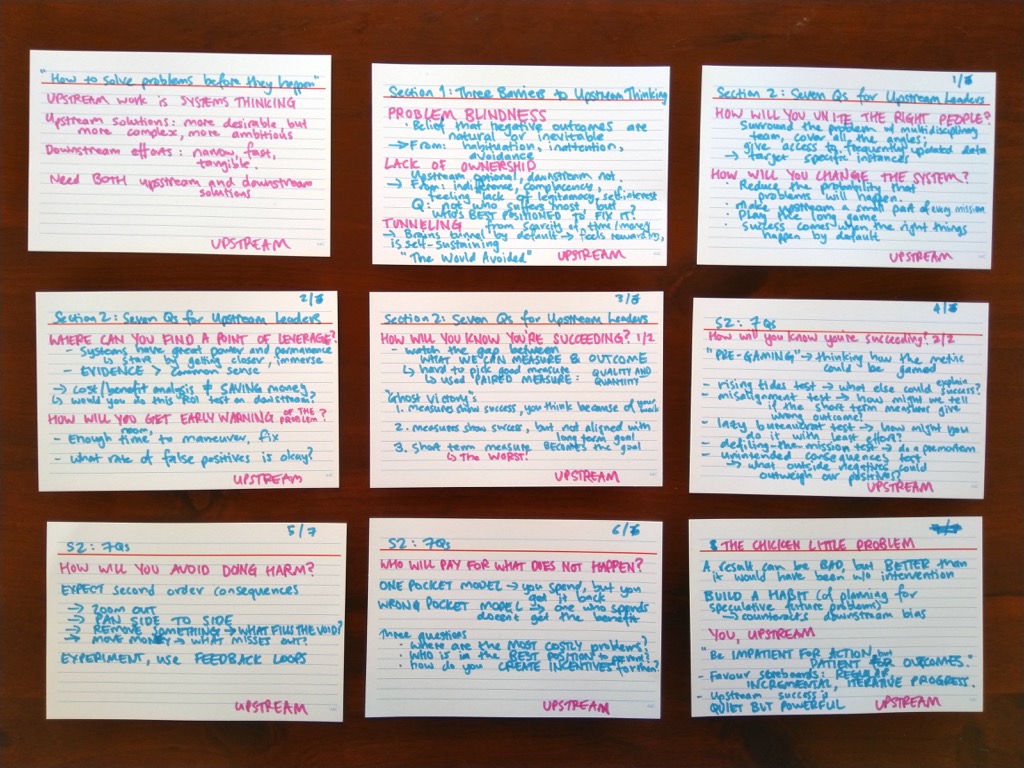 "How to solve problems before they happen"
UPSTREAM work is SYSTEMS THINKING
Upstream solutions: more desirable, but
more complex, more ambitious
Downstream efforts: narrow, fast,
tangible.
Need BOTH upstream and downstream
solutions
UPSTREAM
Section 1: Three Barriers to Upstream Thinking
PROBLEM BLINDNESS
· Belief that negative outcomes are
natural or inevitable
→ From: habituation, inattention,
avoidance
LACK OF OWNERSHIP
Upstream optional, downstream not.
→ From: indifference, complacency,
feeling lack of legitamacy, self-interest
Q: not who suffers most, but
WHO'S BEST POSITIONED TO FIX IT?
TUNNELING from scarcity of time/money
→ Brains tunnel by default → feels rewarding,
is self-sustaining
"The World Avoided" UPSTREAM
Section 2: Seven Qs for Upstream Leaders
HOW WILL YOU UNITE THE RIGHT PEOPLE?
Surround the problem w/ multidisciplinary
team, cover all the angles,
give access to frequently updated data
→ target specific instances
HOW WILL YOU CHANGE THE SYSTEM?
· Reduce the probability that
problems will happen.
· Make upstream a small part of every mission
· Play the long game
· Success comes when the right things
happen by default
UPSTREAM
Section 2: Seven Qs for Upstream Leaders
WHERE CAN YOU FIND A POINT OF LEVERAGE?
- Systems have great power and permanence
↳ start by getting closer, immerse
- EVIDENCE > common sense
→ cost/benefit analysis ≠ SAVING money,
↳ would you do this ROI test on downstream?
HOW WILL YOU GET EARLY WARNING OF THE PROBLEM?
- Enough time room, to maneuver, fix
- What rate of false positives is okay?
UPSTREAM
Section 2: Seven Qs for Upstream Leaders
HOW WILL YOU KNOW YOU'RE SUCCEEDING? 1/2
- watch the gap between
WHAT WE CAN MEASURE & OUTCOME
↳ hard to pick good measure
↳ used PAIRED MEASURE: QUALITY AND QUANTITY
"Ghost Victory"s
1. measures show success, you think because of your work
2. measures show success, but not aligned with
long term goal
3. Short term measure BECOMES the goal
↳ The WORST!
UPSTREAM
S2: 7Qs
How will you know you're succeeding? 2/2
"PRE-GAMING" → thinking how the metric
could be gamed
- rising tides test → what else could explain success?
- misalignment test → how might we tell
if the short term measures give
wrong outcome?
- lazy bureaucrat test → how might you
do it with least effort?
- defiling-the-mission test → do a premortem
- Unintended consequences test
→ what outside negatives could
outweigh our positives?
UPSTREAM
5/7
S2: 7Qs
HOW WILL YOU AVOID DOING HARM?
EXPECT second order consequences
→ ZOOM OUT
→ PAN SIDE TO SIDE
→ REMOVE SOMETHING → WHAT FILLS THE VOID?
→ MOVE MONEY → WHAT MISSES OUT?
EXPERIMENT, USE FEEDBACK LOOPS
UPSTREAM
S2: 7Qs
WHO WILL PAY FOR WHAT DOES NOT HAPPEN?
ONE POCKET MODEL → you spend, but you
got it back
WRONG POCKET MODEL → one who spends
doesn't get the benefit
Three questions
· Where are the MOST COSTLY problems?
· WHO is in the BEST POSITION to prevent?
· How do you CREATE INCENTIVES for them?
UPSTREAM
THE CHICKEN LITTLE PROBLEM
A result can be BAD, but BETTER than
it would have been w/o intervention
BUILD A HABIT (of planning for
speculative future problems)
→ counteracts downstream bias
YOU, UPSTREAM
"Be IMPATIENT FOR ACTION, but
PATIENT FOR OUTCOMES."
- Favour scoreboards: REGULAR,
INCREMENTAL, ITERATIVE PROGRESS.
- Upstream success is
QUIET BUT POWERFUL UPSTREAM